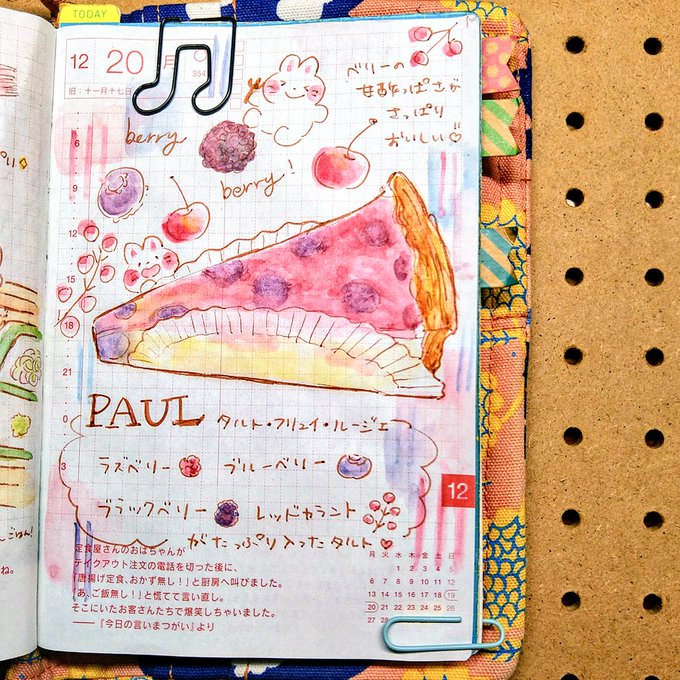 TODAY
12 20 月
354
旧:十一月十七日
ベリーの
甘酸っぱさが
さっぱり
おいしい♡
berry
berry!
6
9
12
15
18
21
0
3
PAUL タルト・フリュイ・ルージュ
ラズベリー ブルーベリー
ブラックベリー レッドカラント
がたっぷり入ったタルト♥
12
定食屋さんのおばちゃんが
テイクアウト注文の電話を切った後に、
「唐揚げ定食、おかず無し!」と厨房へ叫びました。
「あ、ご飯無し!」と慌てて言い直し。
そこにいたお客さんたちで爆笑しちゃいました。
——『今日の言いまつがい』より
月 火 水 木 金 土 日
1 2 3 4 5
6 7 8 9 10 11 12
13 14 15 16 17 18 19
20 21 22 23 24 25 26
27 28